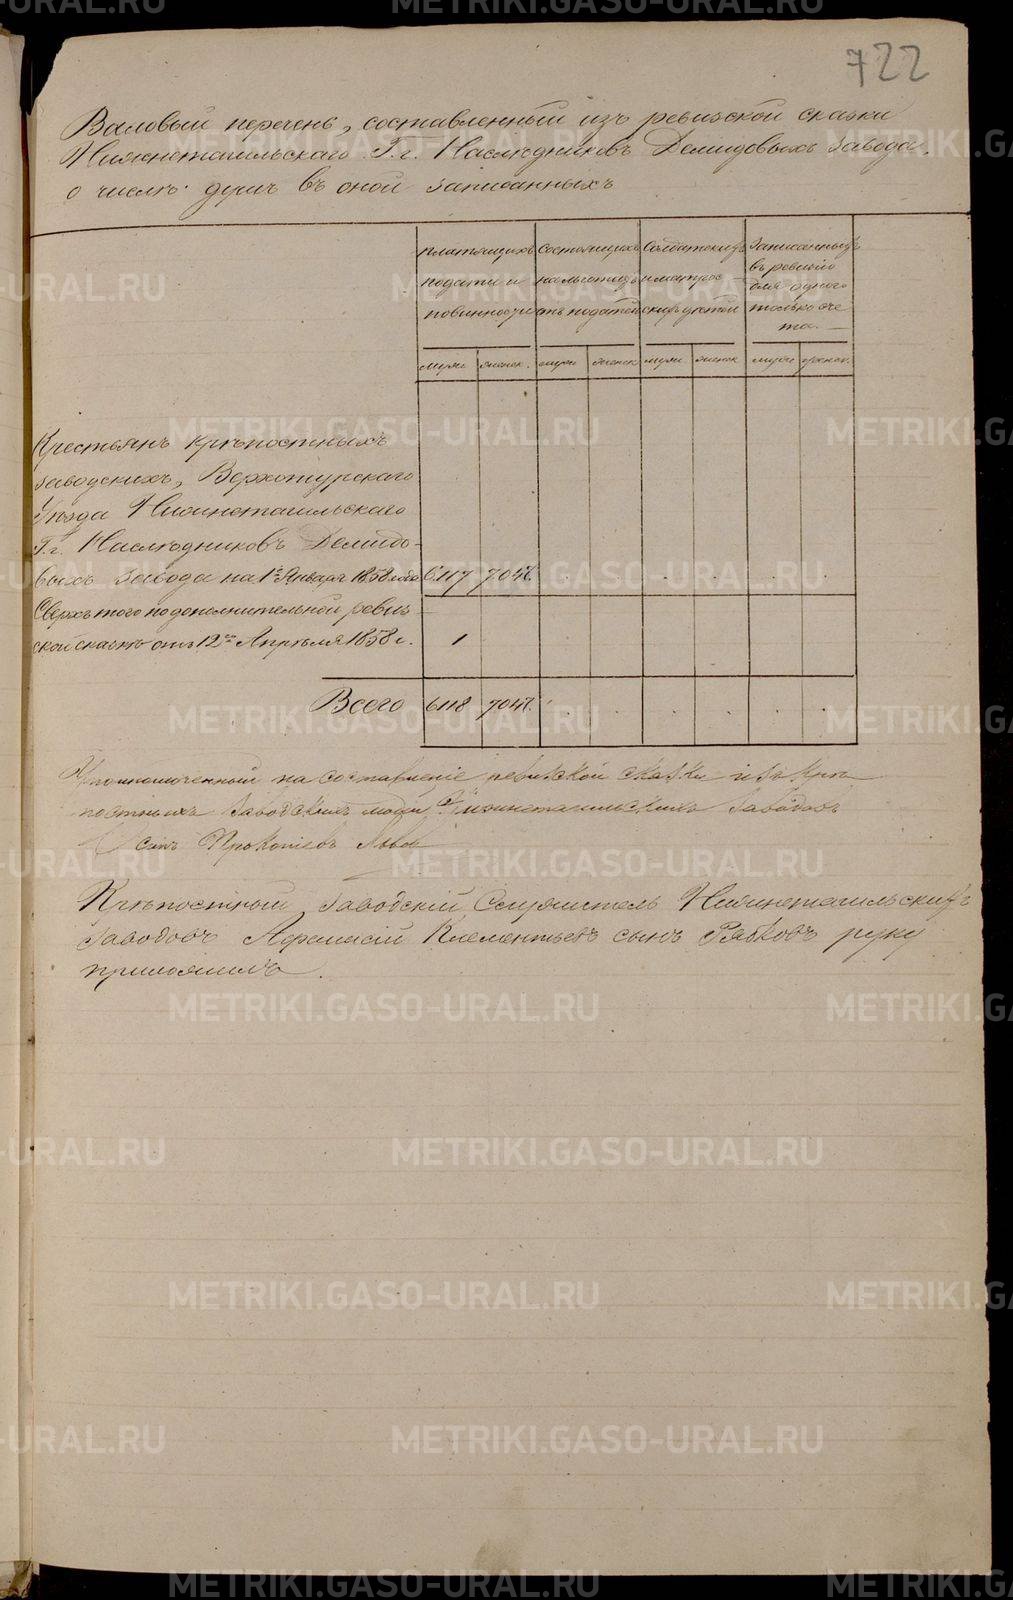 722
Валовый перечень, составленный изъ ревизской сказки
Нижнетагильскаго Г.г. Наслѣдниковъ Демидовыхъ завода,
о числѣ душъ въ оной записанныхъ
платящихъ подати и повинности
Состоящихъ на льготахъ отъ податей
Солдатскихъ и матросскихъ дѣтей
Записанныхъ въ ревизію для одного только счета.
муж. женск. муж. женск. муж. женск. муж. женск.
Крестьянъ крѣпостныхъ
заводскихъ, Верхотурскаго
Уѣзда Нижнетагильскаго
Г.г. Наслѣдниковъ Демидо-
выхъ завода на 1е Января 1858 года 6117 7047
Сверхъ того по дополнительной ревиз
ской сказкѣ отъ 12го Апрѣля 1858 г. 1
Всего 6118 7047
Уполномоченный на составленіе ревизской сказки изъ крѣ
постныхъ заводскихъ людей Нижнетагильскихъ заводовъ
Осипъ Прокопьевъ
Крѣпостный заводскій Служитель Нижнетагильскихъ
заводовъ Афанасій Клементьевъ сынъ Рябковъ руку
приложилъ.
METRIKI.GASO-URAL.RU